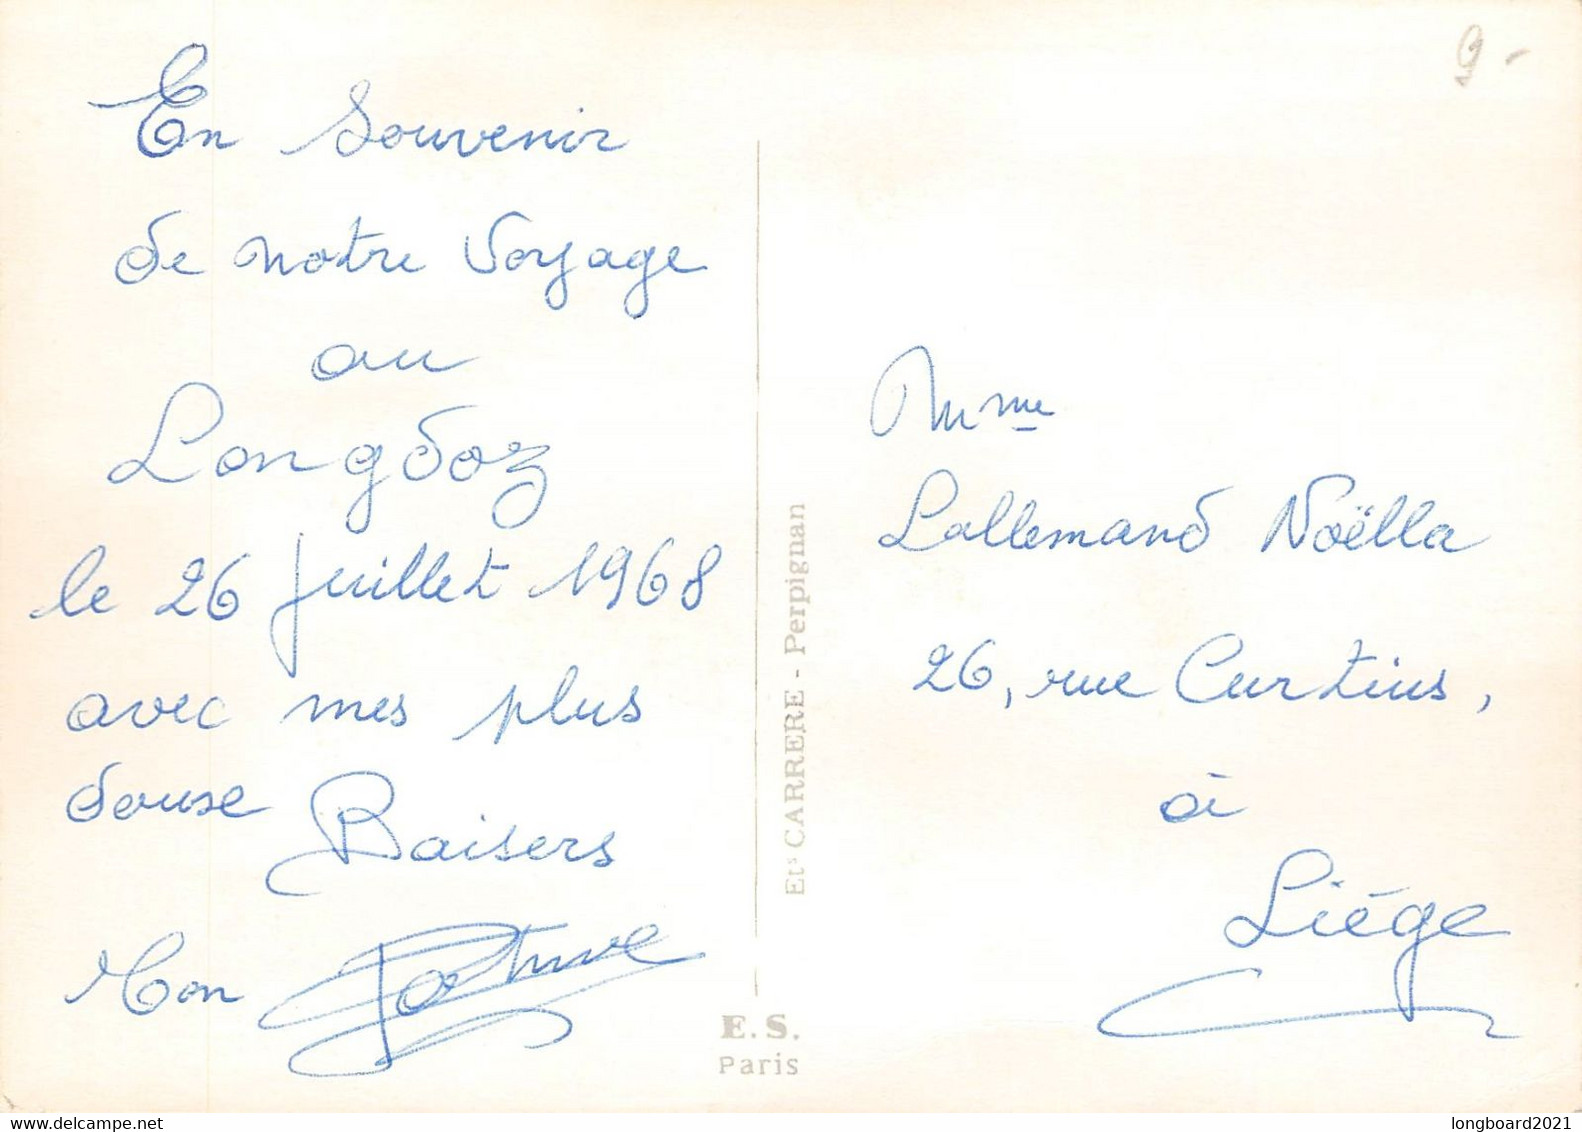 En Souvenir
de notre Voyage
au
Longdoz
le 26 juillet 1968
avec mes plus
douse Baisers
Mon
Mme
Lallemand Noëlla
26, rue Curtius,
à
Liége
Ets CARRERE - Perpignan
E. S.
Paris
9 -
delcampe.net
longboard2021